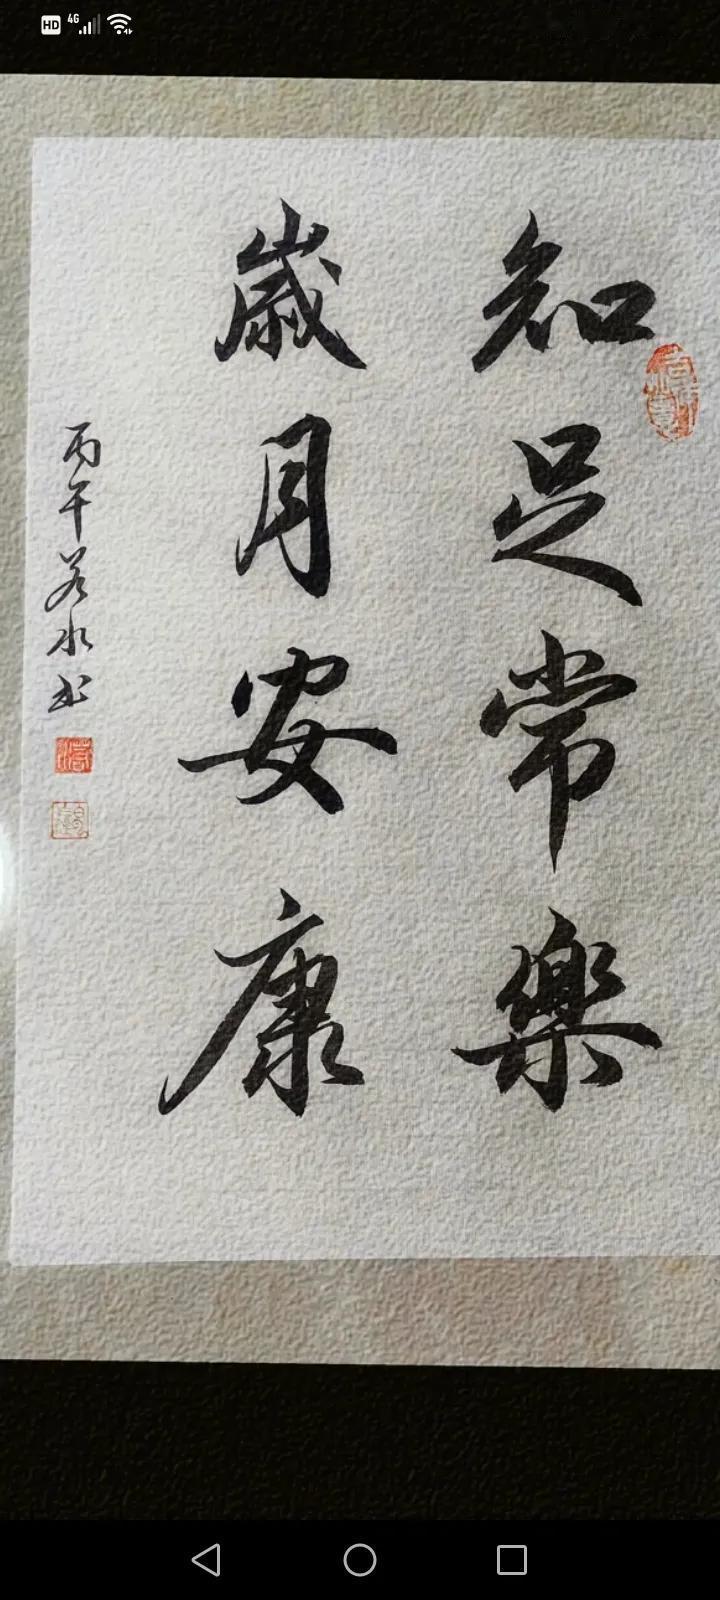 HD 4G
知足常樂
歲月安康
丙午若水书